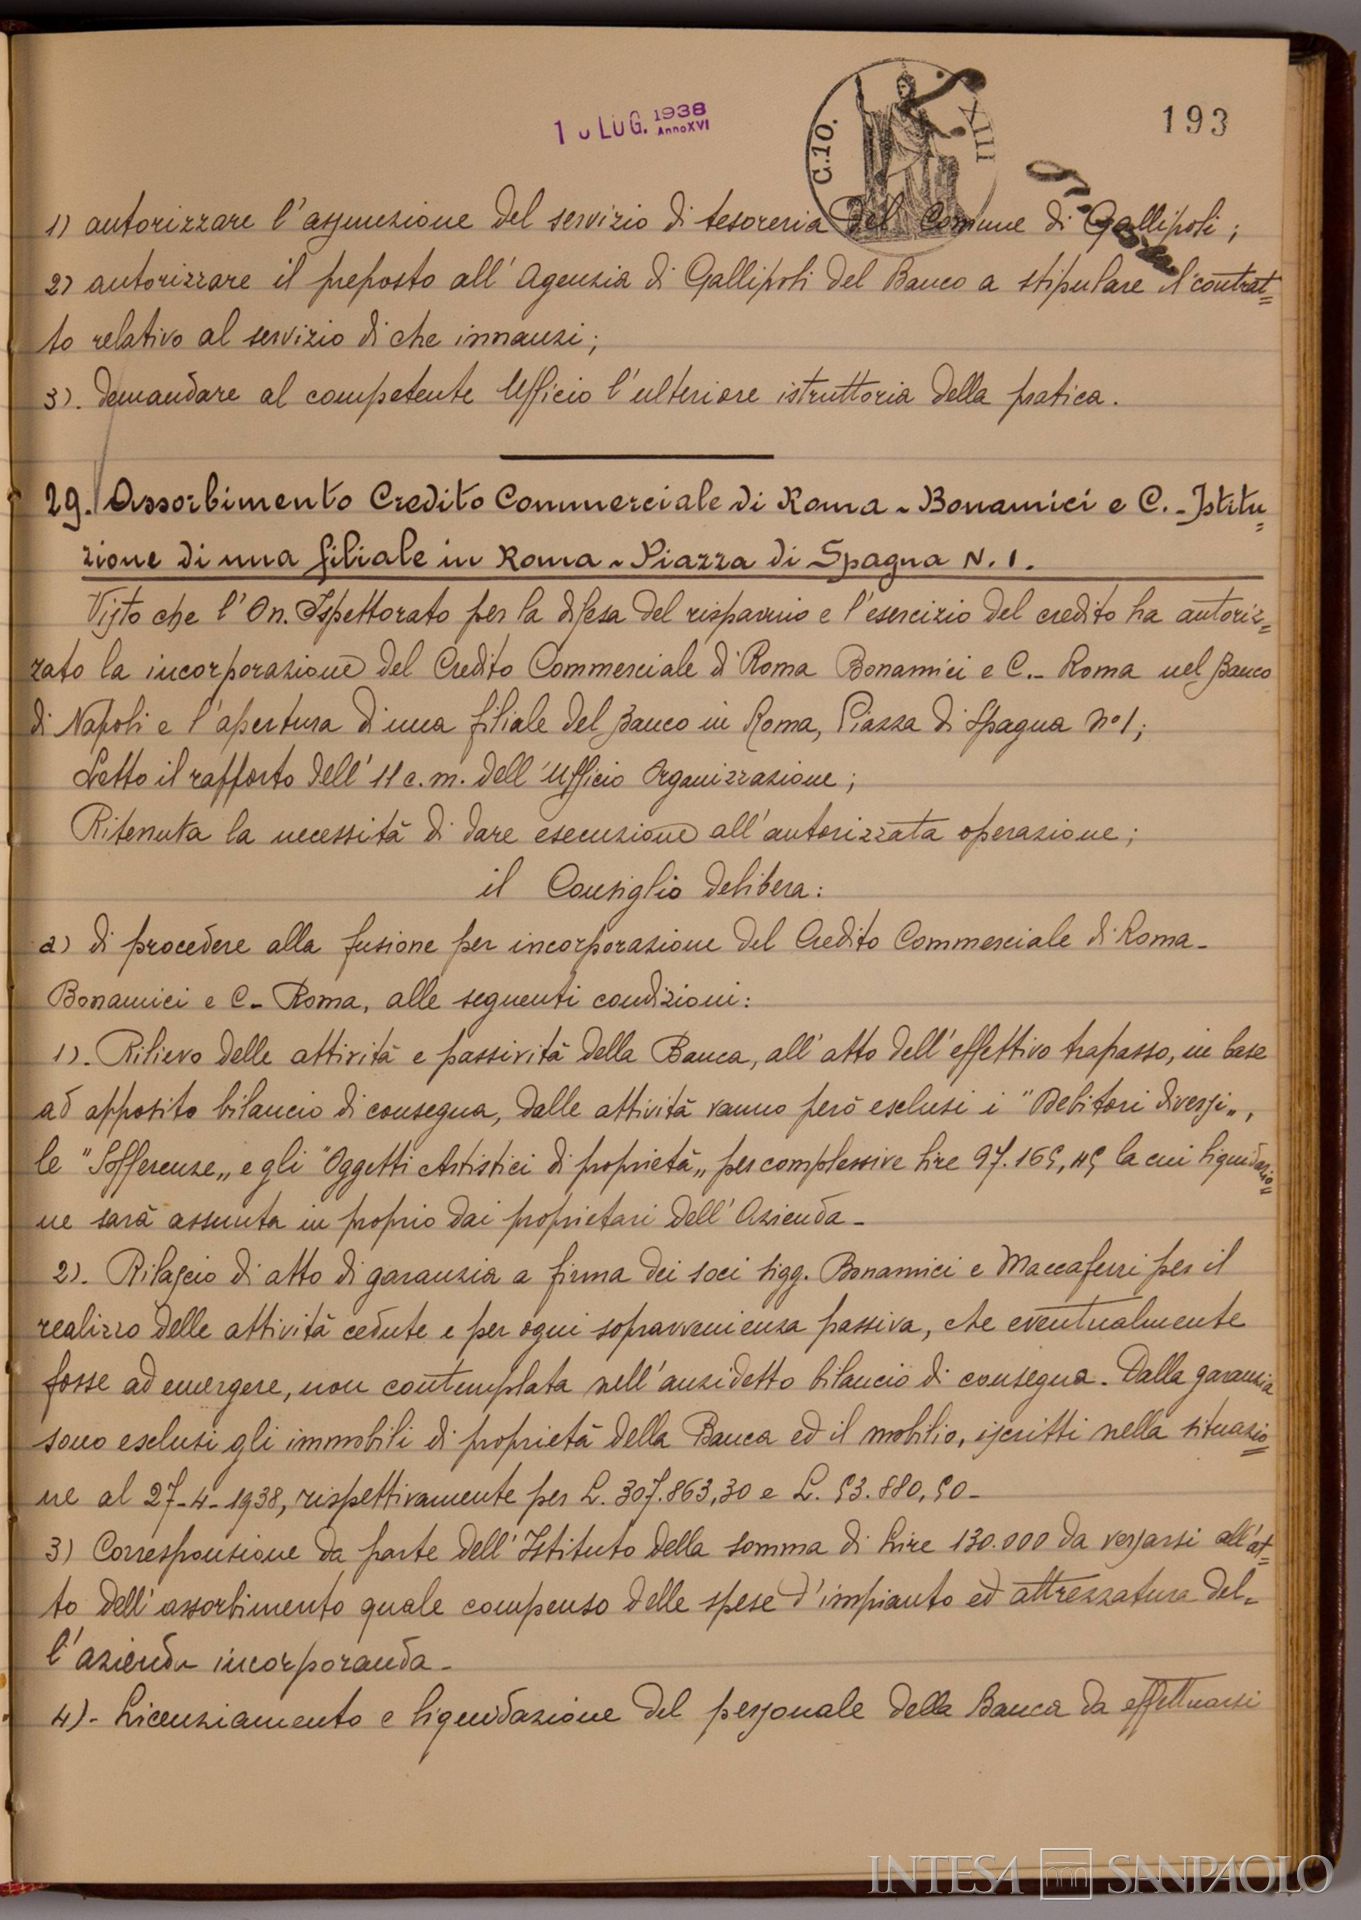 1 LUG. 1938
Anno XVI
C.10.
XIII
193
1) autorizzare l'assunzione del servizio di tesoreria del Comune di Gallipoli;
2) autorizzare il preposto all'Agenzia di Gallipoli del Banco a stipulare il contrat=
to relativo al servizio di che innanzi;
3). demandare al competente Ufficio l'ulteriore istruttoria della pratica.
29. Assorbimento Credito Commerciale di Roma - Bonamici e C. - Istitu=
zione di una filiale in Roma - Piazza di Spagna N. 1.
Visto che l'On. Ispettorato per la difesa del risparmio e l'esercizio del credito ha autoriz=
zato la incorporazione del Credito Commerciale di Roma Bonamici e C. - Roma nel Banco
di Napoli e l'apertura di una filiale del Banco in Roma, Piazza di Spagna n° 1;
Letto il rapporto dell'11 c.m. dell'Ufficio Organizzazione;
Ritenuta la necessità di dare esecuzione all'autorizzata operazione;
il Consiglio delibera:
a) di procedere alla fusione per incorporazione del Credito Commerciale di Roma -
Bonamici e C. - Roma, alle seguenti condizioni:
1). Rilievo delle attività e passività della Banca, all'atto dell'effettivo trapasso, in base
ad apposito bilancio di consegna, dalle attività vanno però esclusi i "Debitori diversi",
le "Sofferenze" e gli "Oggetti Artistici di proprietà" per complessive lire 97.165,45 la cui liquidazio=
ne sarà assunta in proprio dai proprietari dell'Azienda -
2). Rilascio di atto di garanzia a firma dei soci sigg. Bonamici e Maccaferri per il
realizzo delle attività cedute e per ogni sopravvenienza passiva, che eventualmente
fosse ad emergere, non contemplata nell'anzidetto bilancio di consegna. Dalla garanzia
sono esclusi gli immobili di proprietà della Banca ed il mobilio, iscritti nella situazio=
ne al 27-4-1938, rispettivamente per L. 307.863,30 e L. 53.880,50 -
3) Corresponsione da parte dell'Istituto della somma di Lire 130.000 da versarsi all'at=
to dell'assorbimento quale compenso delle spese d'impianto ed attrezzatura del=
l'azienda incorporanda -
4) - Licenziamento e liquidazione del personale della Banca da effettuarsi
INTESA SANPAOLO